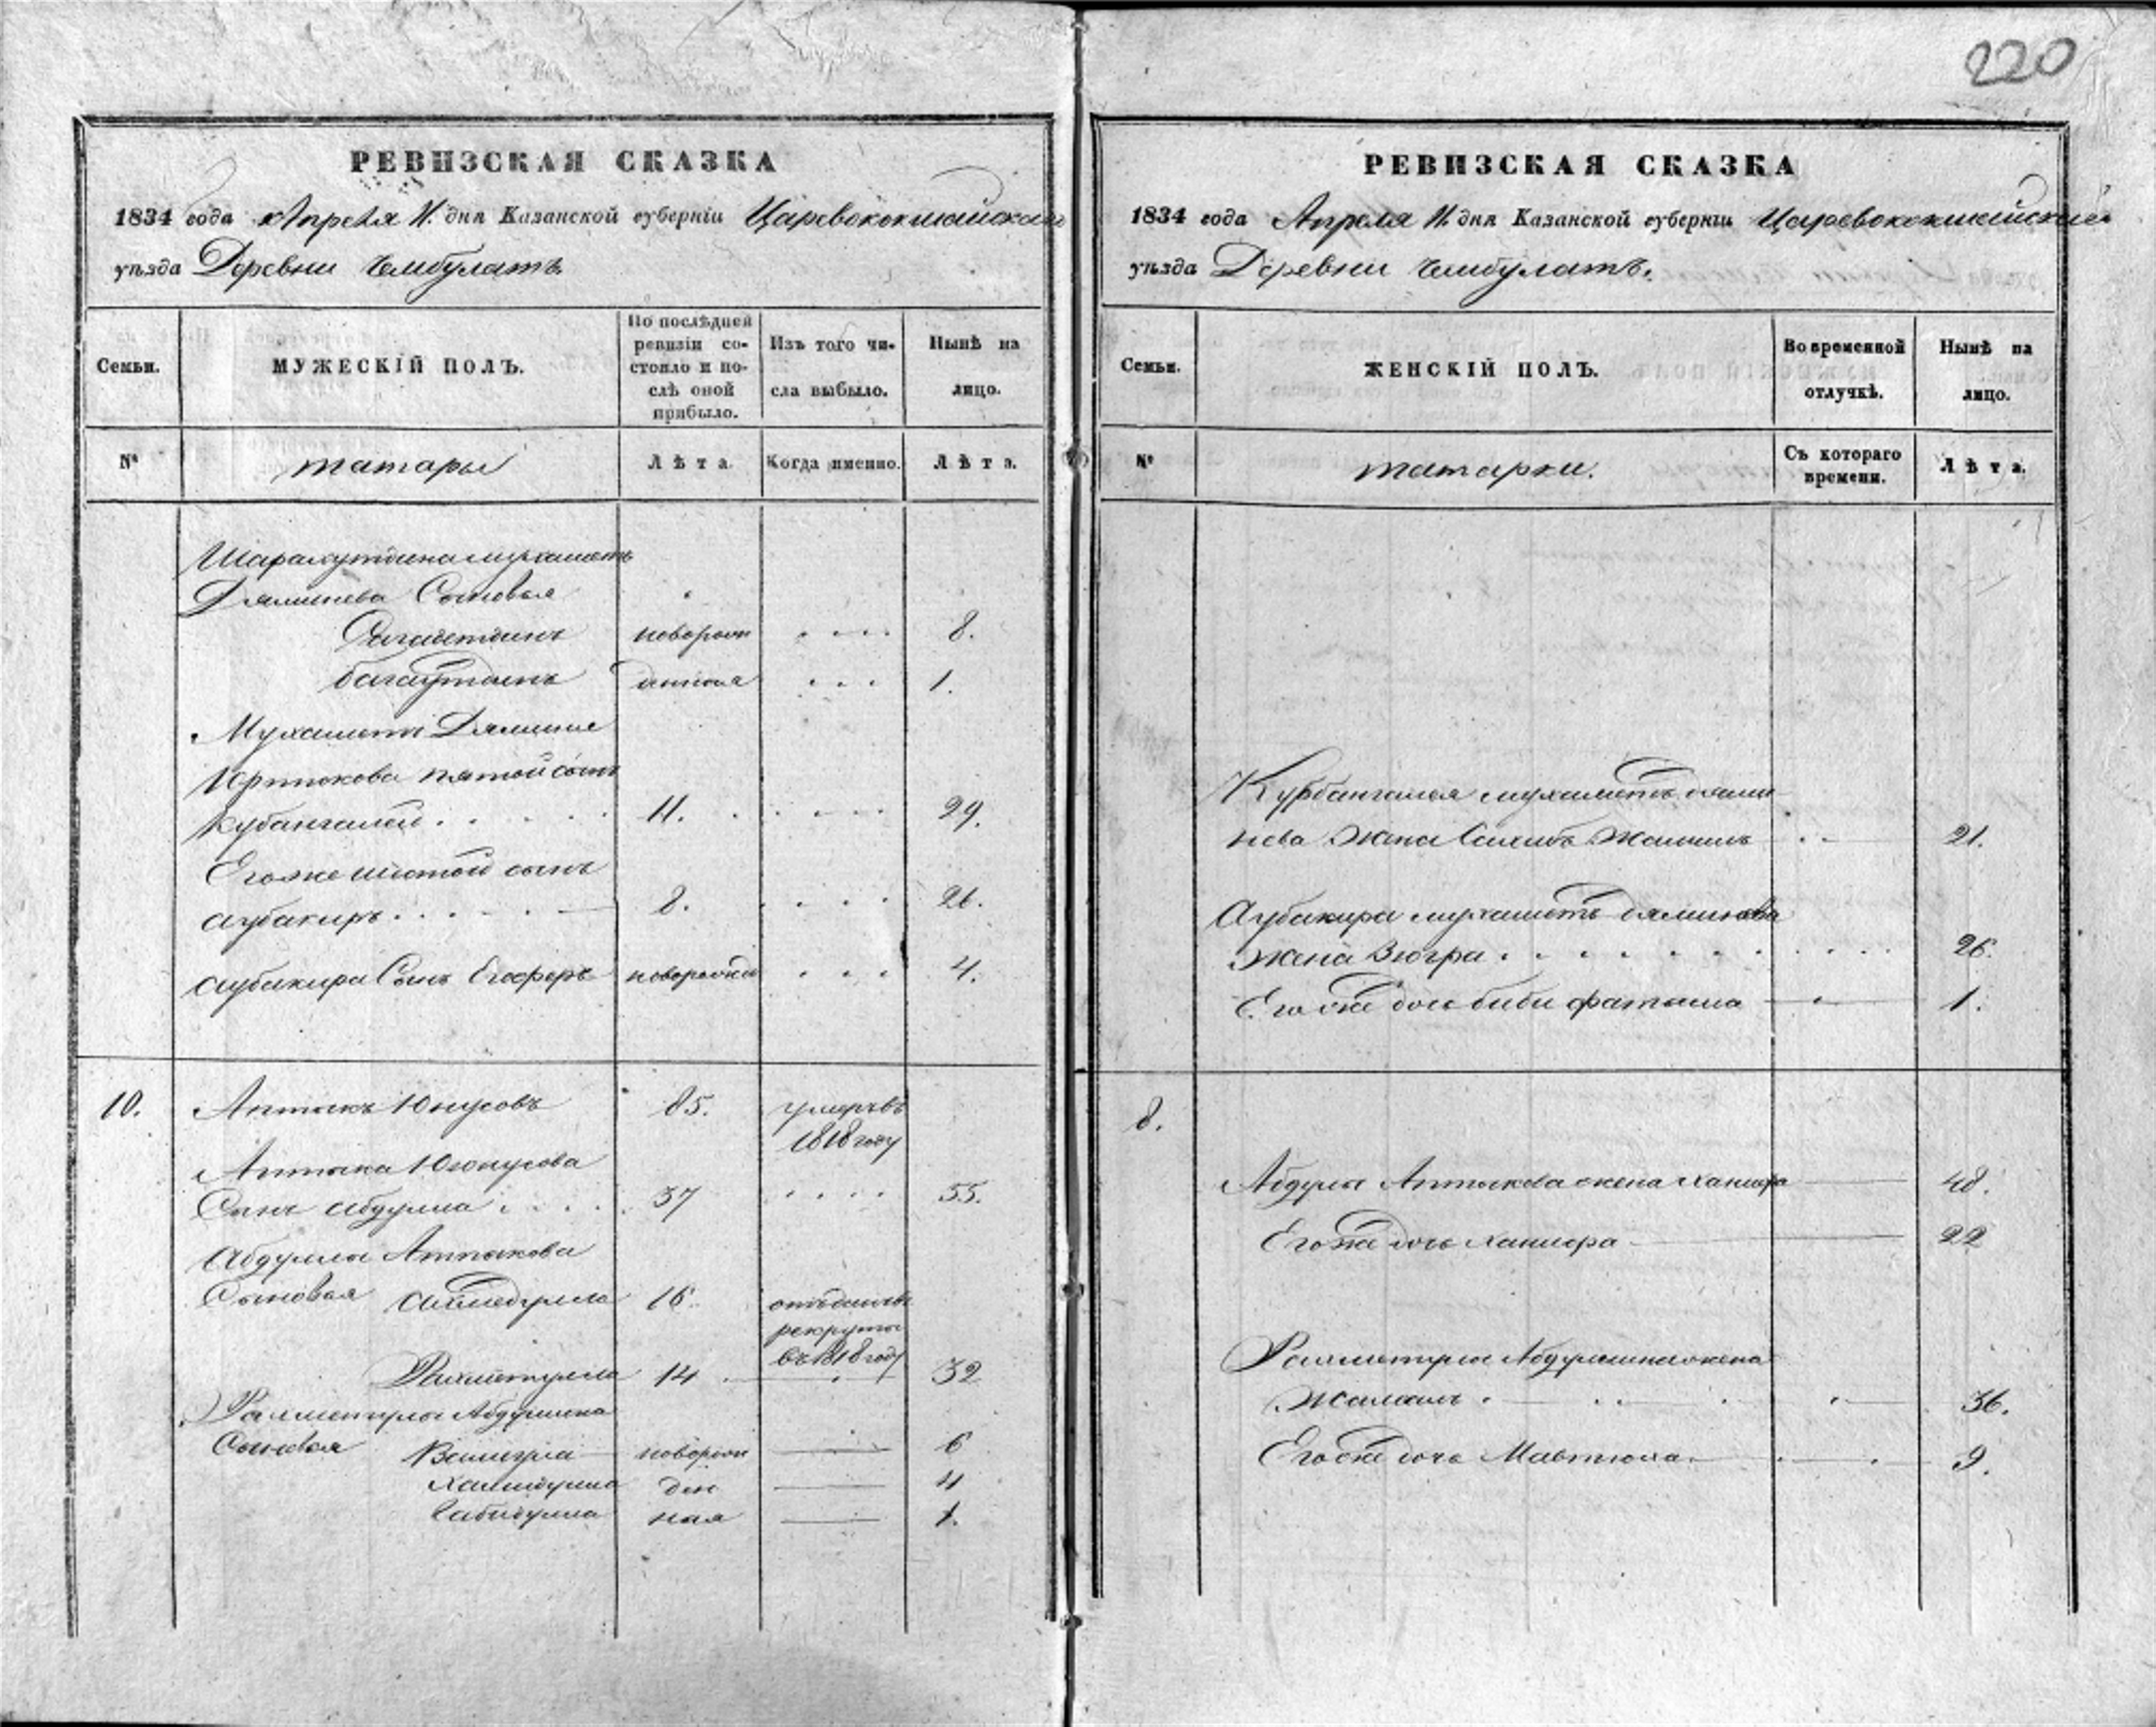 220
РЕВИЗСКАЯ СКАЗКА
1834 года Апреля 11. дня Казанской губерніи Царевококшайскаго
уѣзда Деревни Чембулатъ
Семьи.
МУЖЕСКІЙ ПОЛЪ.
По послѣдней ревизіи со-
стояло и по-
слѣ оной
прибыло.
Изъ того чи-
сла выбыло.
Нынѣ на
лицо.
№
татары
Лѣта.
Когда именно.
Лѣта.
Шарахутдина мухаметъ
Дяминева Сыновья
новорож 8.
багаутдинъ денныя 1.
Мухаметъ Дямине
Юртюкова пятой сынъ
Кубангалей 11. 29.
Егоже шестой сынъ
аубакиръ 8. 26.
аубакира Сынъ новорожде 4.
10. Аптыкъ Юнусовъ 85. умеръ въ
1818 году
Аптыка Юнусова
Сынъ абдулла 37 55.
Абдуллы Аптыкова
Сыновья 16. отъданъ въ
рекруты
въ 1818 году
Рахметулла 14 32
Рахметуллы Абдуллина
Сыновья Валиулла новорож 6
Халиулла ден 4
Габидулла ная 1.
РЕВИЗСКАЯ СКАЗКА
1834 года Апреля 11. дня Казанской губерніи Царевококшайскаго
уѣзда Деревни Чембулатъ.
Семьи.
ЖЕНСКІЙ ПОЛЪ.
Во временной
отлучкѣ.
Нынѣ на
лицо.
№
татарки.
Съ котораго
времени.
Лѣта.
Курбангалея мухаметъ дями
нева Жена Сахибъ Жамиль 21.
Аубакира мухаметъ дяминева
Жена Зюгра 26.
Его же дочь биби фатыма 1.
8.
Абдулы Аптыкова жена 48.
Его же дочь 22
Рахметулы Абдуллина жена
Жамаль 36.
Его же дочь Мавтюха 9.